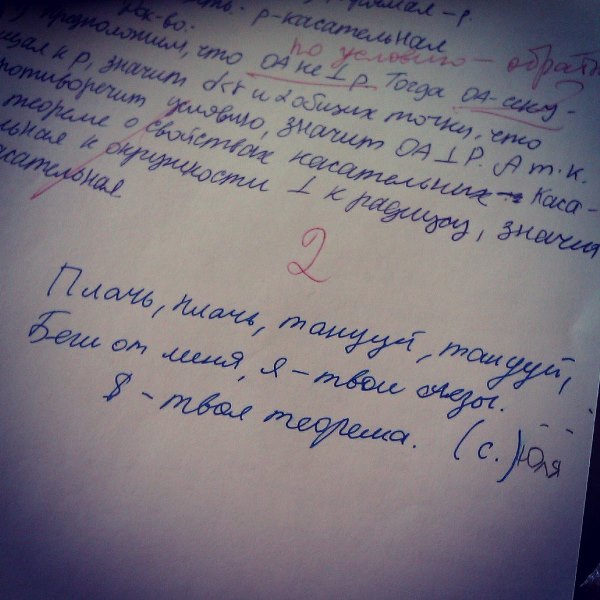 прямая - р.
р-касательная
по условию - обратн
предположим, что ОА не ⊥ р. Тогда ОА-секу-
щая к р, значит d<r и 2 общих точки, что
противоречит условию, значит ОА ⊥ Р. А т.к.
теореме о свойствах касательных Каса-
льная к окружности ⊥ к радиусу, значит
касательная
2
Плачь, плачь, танцуй, танцуй,
Беги от меня, я - твои слёзы.
Я - твоя теорема. (с.) Юля